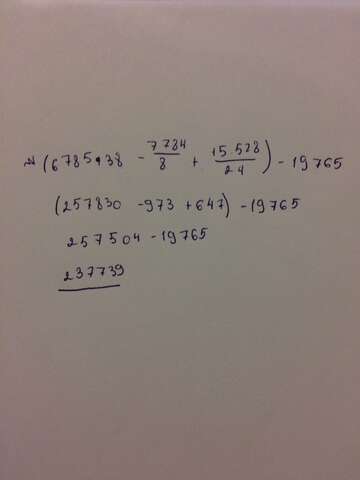 (6785•38 - 7784/8 + 15.528/24) - 19765
(257830 - 973 + 647) - 19765
257504 - 19765
237739